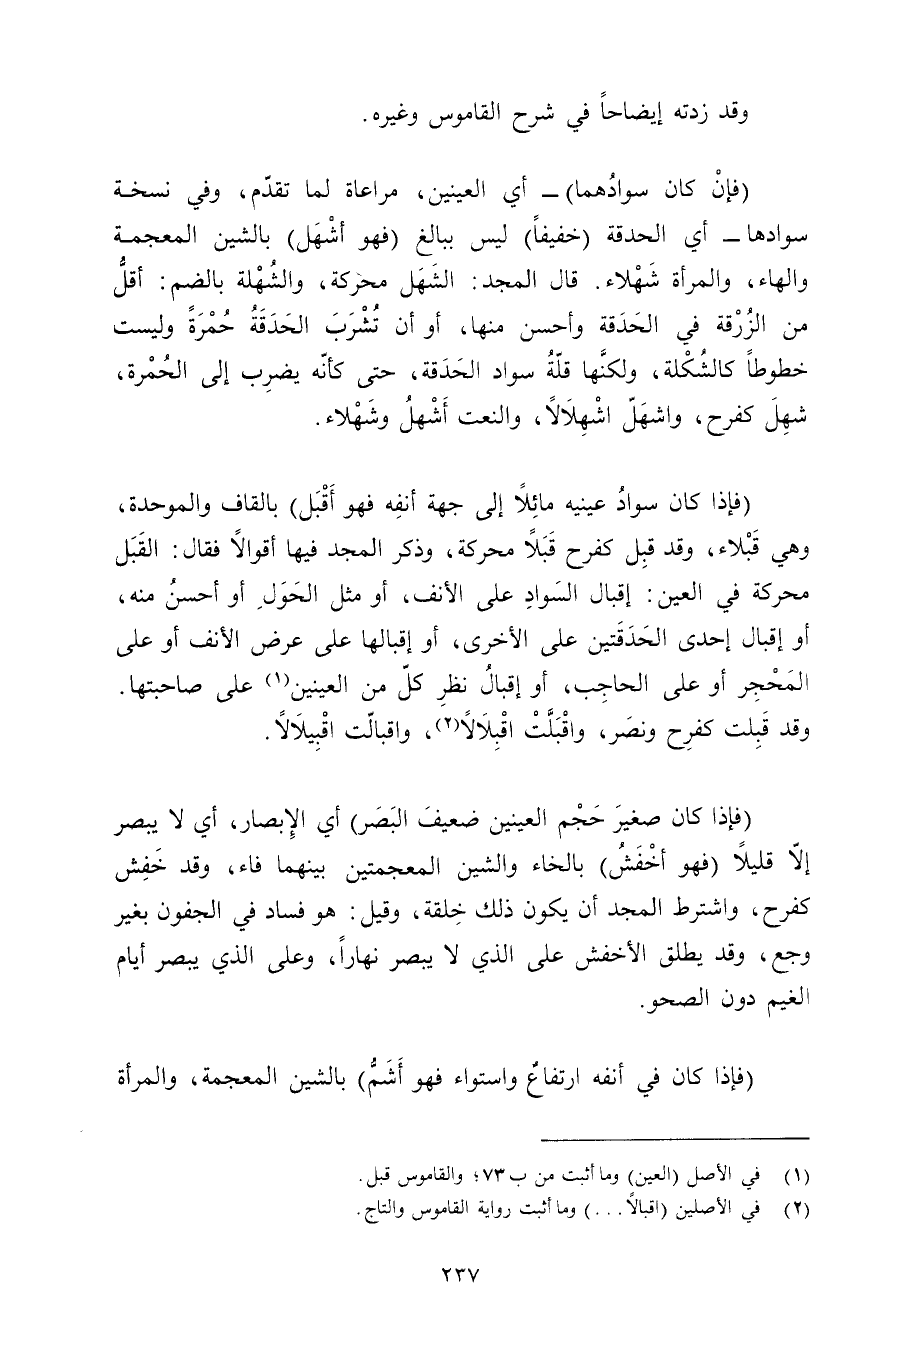 وقد زدته إيضاحاً في شرح القاموس وغيره.
(فإنْ كان سوادُهما) ــ أي العينين، مراعاة لما تقدّم، وفي نسخـة
سوادها ــ أي الحدقة (خفيفاً) ليس ببالغ (فهو أشْهَل) بالشين المعجمـة
والهاء، والمرأة شَهْلاء. قال المجد: الشَهَل محرَكة، والشُهْلة بالضم: أقلُّ
من الزُرْقة في الحَدَقة وأحسن منها، أو أن تُشْرَبَ الحَدَقَةُ حُمْرَةً وليست
خطوطاً كالشُكْلة، ولكنَّها قلّةُ سواد الحَدَقة، حتى كأنّه يضرِب إلى الحُمْرة،
شهِلَ كفرح، واشهَلّ اشْهِلَالًا، والنعت أَشْهلُ وشَهْلاء.
(فإذا كان سوادُ عينيه مائِلًا إلى جهة أنفِه فهو أَقْبَل) بالقاف والموحدة،
وهي قَبْلاء، وقد قبِل كفرح قَبَلًا محركة، وذكر المجد فيها أقوالًا فقال: القَبَل
محركة في العين: إقبال السَوادِ على الأنف، أو مثل الحَوَلِ أو أحسنُ منه،
أو إقبال إحدى الحَدَقَتين على الأخرى، أو إقبالها على عرض الأنف أو على
المَحْجِر أو على الحاجِب، أو إقبالُ نظرِ كلّ من العينين(١) على صاحبتها.
وقد قَبِلت كفرِح ونصَر، واقْبَلَّتْ اقْبِلَالًا(٢)، واقبالّت اقْبِيلَالًا.
(فإذا كان صغيرَ حَجْم العينين ضعيفَ البَصَر) أي الإِبصار، أي لا يبصر
إلّا قليلًا (فهو أخْفَشُ) بالخاء والشين المعجمتين بينهما فاء، وقد خَفِش
كفرح، واشترط المجد أن يكون ذلك خِلقة، وقيل: هو فساد في الجفون بغير
وجع، وقد يطلق الأخفش على الذي لا يبصر نهاراً، وعلى الذي يبصر أيام
الغيم دون الصحو.
(فإذا كان في أنفه ارتفاعٌ واستواء فهو أَشَمُّ) بالشين المعجمة، والمرأة
(١) في الأصل (العين) وما أثبت من ب٧٣؛ والقاموس قبل.
(٢) في الأصلين (اقبالًا...) وما أثبت رواية القاموس والتاج.
٢٣٧